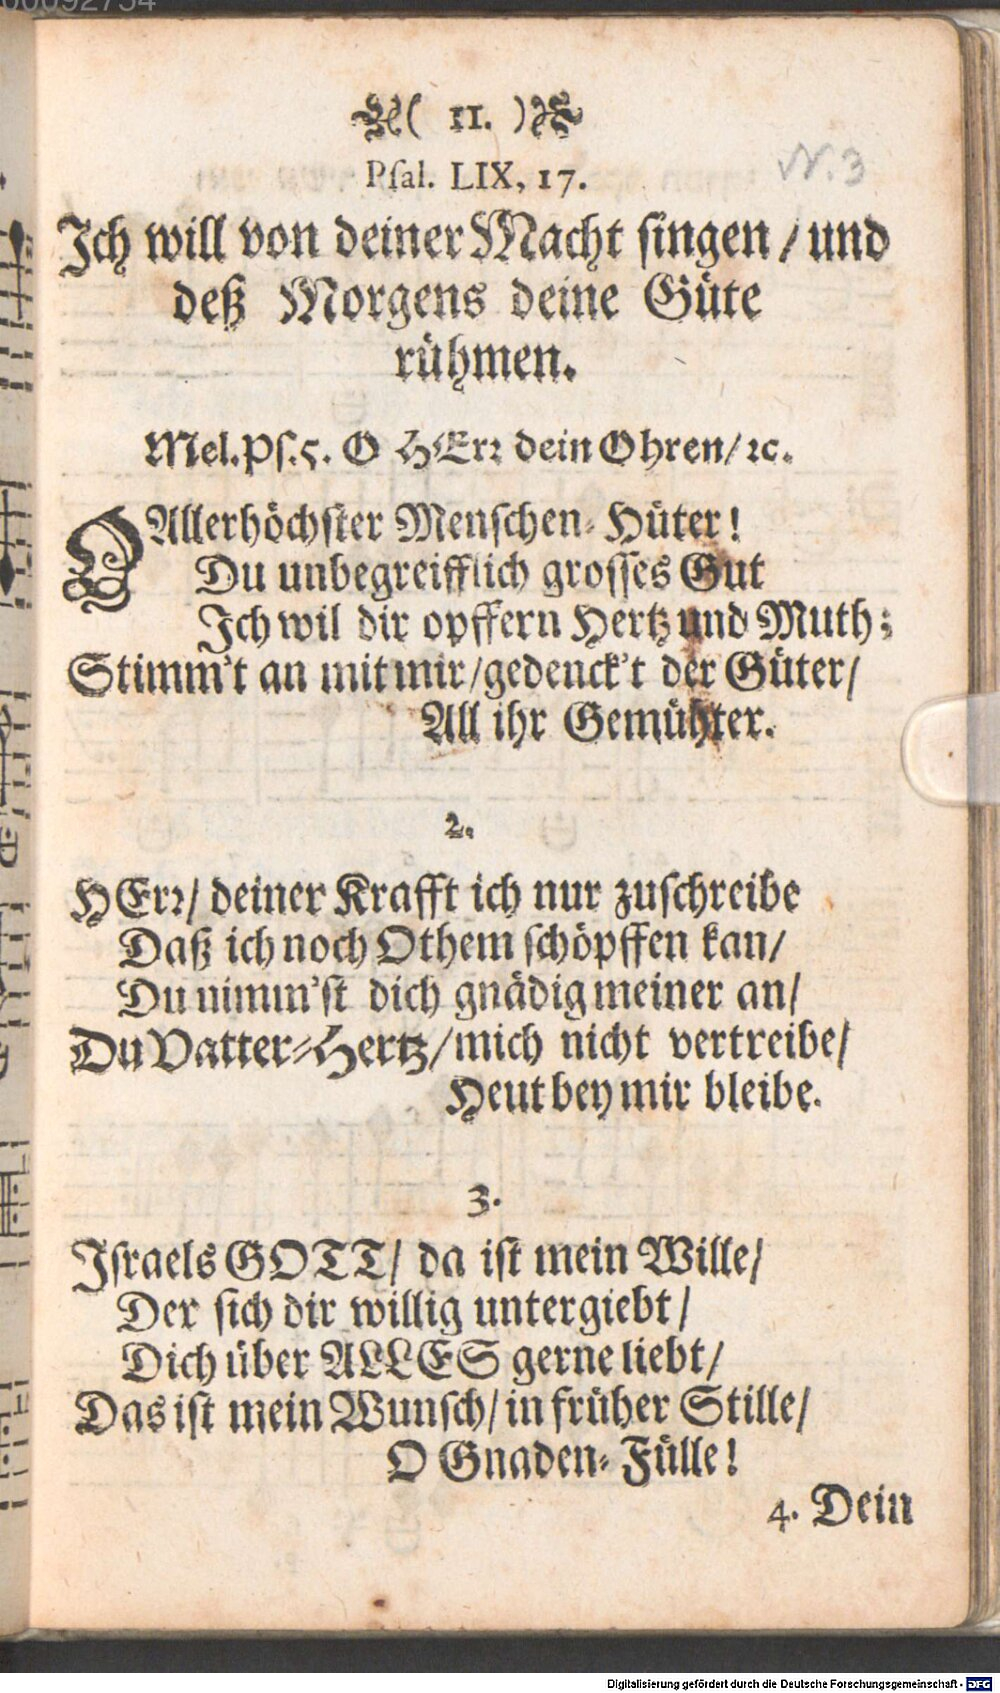 00092754
( 11. )
Pſal. LIX, 17.
N. 3
Ich will von deiner Macht ſingen / und
deß Morgens deine Güte
rühmen.
Mel. Pſ. 5. O HErꝛ dein Ohren / ꝛc.
O Allerhöchſter Menſchen-Hüter!
Du unbegreifflich groſſes Gut
Ich wil dir opffern Hertz und Muth;
Stimm't an mit mir / gedenck't der Güter /
All ihr Gemühter.
2.
HErꝛ / deiner Krafft ich nur zuſchreibe
Daß ich noch Othem ſchöpffen kan /
Du nimm'ſt dich gnädig meiner an /
Du Vatter-Hertz / mich nicht vertreibe /
Heut bey mir bleibe.
3.
Iſraels GOTT / da iſt mein Wille /
Der ſich dir willig untergiebt /
Dich über ALLES gerne liebt /
Das iſt mein Wunſch / in früher Stille /
O Gnaden-Fülle!
4. Dein
Digitalisierung gefördert durch die Deutsche Forschungsgemeinschaft - DFG